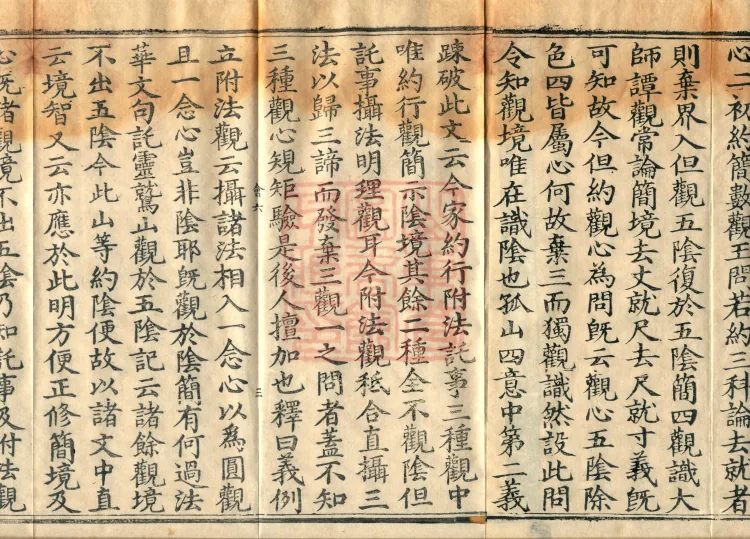 心二初約簡數觀王問若約三科論去就者
則棄界入但觀五陰復於五陰簡四觀識大
師譚觀常論簡境去丈就尺去尺就寸義旣
可知故今但約觀心為問旣云觀心五陰除
色四皆屬心何故棄三而獨觀識然設此問
令知觀境唯在識陰也孤山四意中第二義
踈破此文云今家約行附法託事三種觀中
唯約行觀簡示陰境其餘二種全不觀陰但
託事攝法明理觀耳今附法觀秪合直攝三
法以歸三諦而發棄三觀一之問者蓋不知
三種觀心規矩驗是後人擅加也釋曰義例
會六
三
立附法觀云攝諸法相入一念心以爲圓觀
且一念心豈非陰耶旣觀於陰簡有何過法
華文句託靈鷲山觀於五陰記云諸餘觀境
不出五陰今此山等約陰便故以諸文中直
云境智又云亦應於此明方便正修簡境及
心旣者觀境不出五陰乃知託事及附法觀